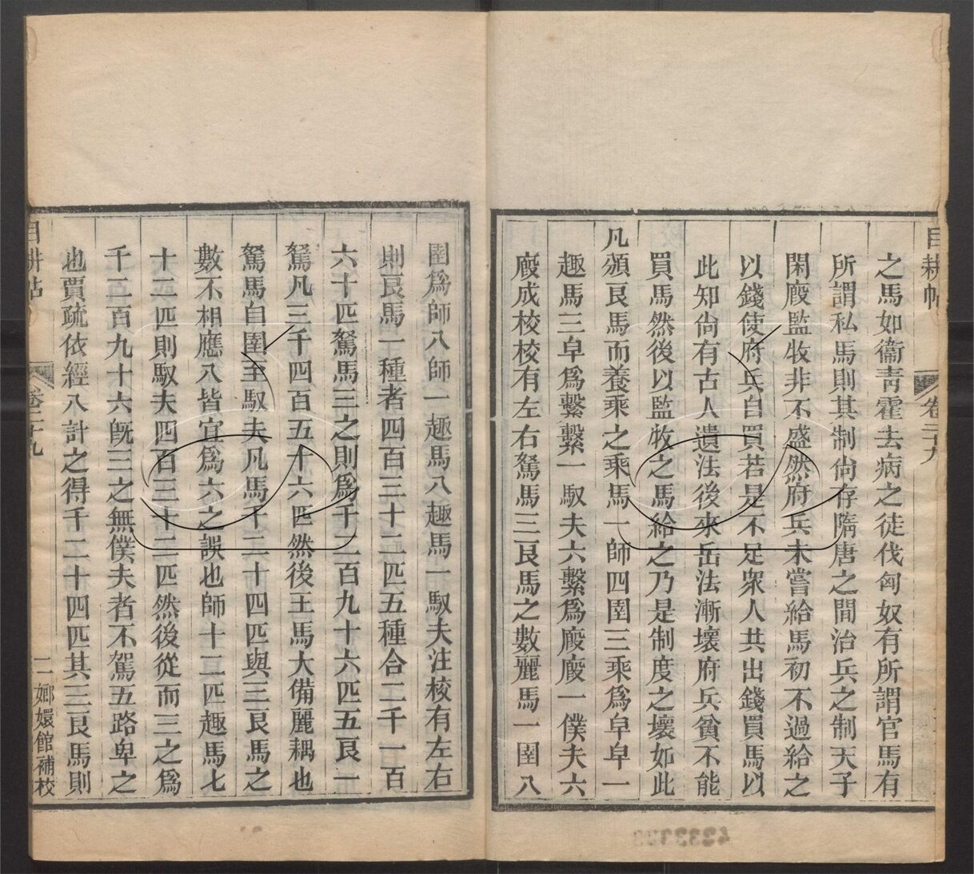 目耕帖
卷二十九
之馬如衞靑霍去病之徒伐匈奴有所謂官馬有
所謂私馬則其制尙存隋唐之間治兵之制天子
閑廐監牧非不盛然府兵未嘗給馬初不過給之
以錢使府兵自買若是不足衆人共出錢買馬以
此知尙有古人遺法後來岳法漸壞府兵貧不能
買馬然後以監牧之馬給之乃是制度之壞如此
凡頒良馬而養乘之乘馬一師四圉三乘爲皁皁一
趣馬三皁爲繫繫一馭夫六繫爲廐廐一僕夫六
廐成校校有左右駑馬三良馬之數麗馬一圉八
圉爲師八師一趣馬八趣馬一馭夫注校有左右
則良馬一種者四百三十二匹五種合二千一百
六十匹駑馬三之則爲千二百九十六匹五良一
駑凡三千四百五十六匹然後王馬大備麗耦也
駑馬自圉至馭夫凡馬千二十四匹與三良馬之
數不相應八皆宜爲六之誤也師十二匹趣馬七
十二匹則馭夫四百三十二匹然後從而三之爲
千二百九十六旣三之無僕夫者不駕五路卑之
也賈疏依經八計之得千二十四匹其三良馬則
目耕帖
卷二十九
二
嫏嬛館補校